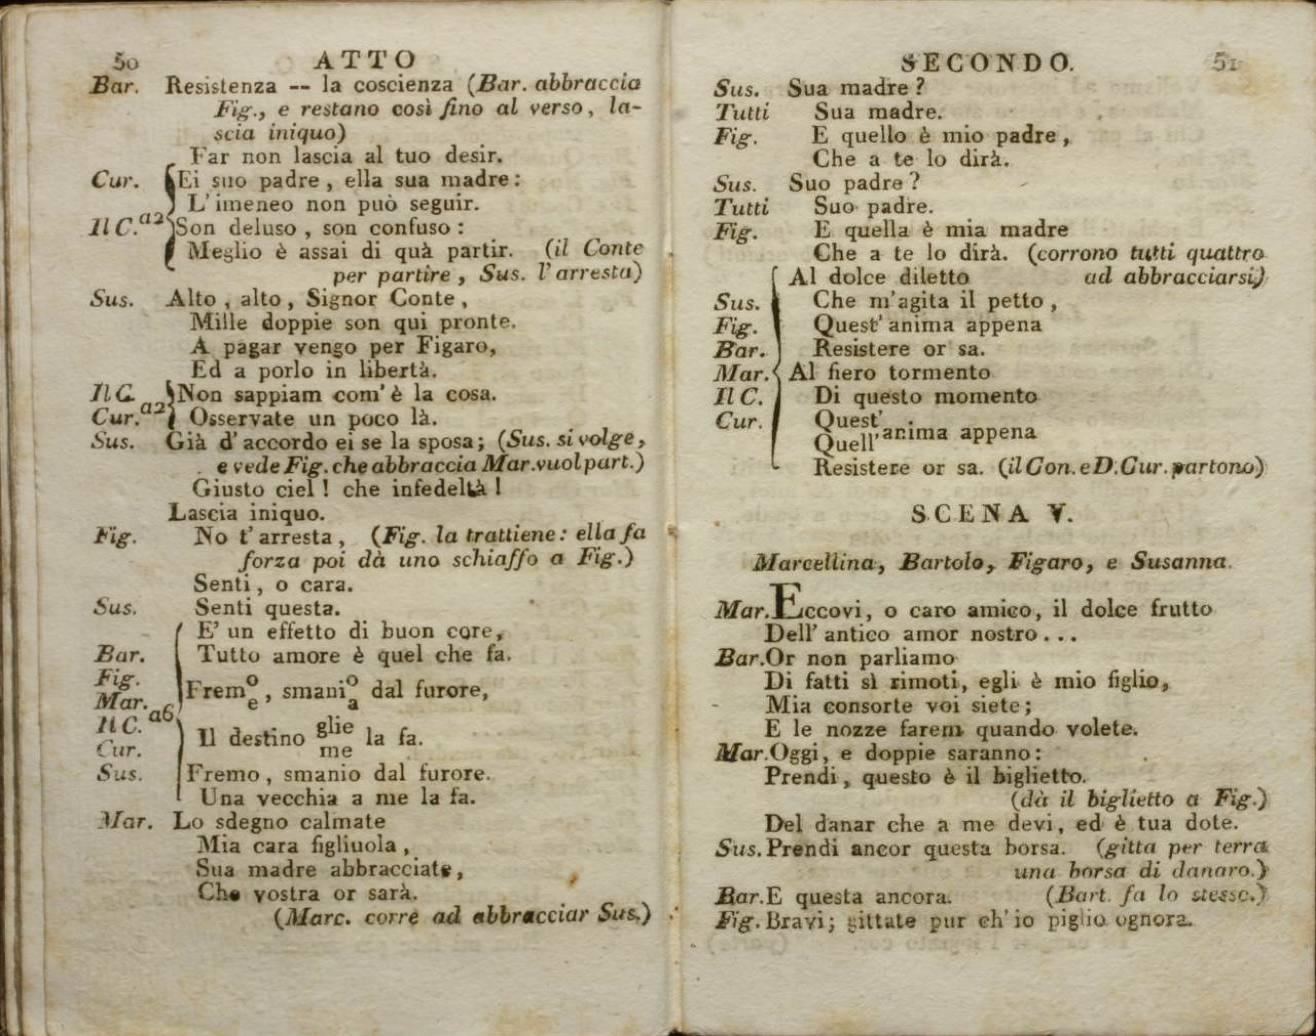 50 ATTO
Bar. Resistenza -- la coscienza (Bar. abbraccia
Fig., e restano così fino al verso, la-
scia iniquo)
Far non lascia al tuo desir.
Cur. Ei suo padre, ella sua madre:
L'imeneo non può seguir.
Il C. a2 Son deluso, son confuso:
Meglio è assai di quà partir. (il Conte
per partire, Sus. l'arresta)
Sus. Alto, alto, Signor Conte,
Mille doppie son qui pronte.
A pagar vengo per Figaro,
Ed a porlo in libertà.
Il C. Non sappiam com'è la cosa.
Cur. a2 Osservate un poco là.
Sus. Già d'accordo ei se la sposa; (Sus. si volge,
e vede Fig. che abbraccia Mar. vuol part.)
Giusto ciel! che infedeltà!
Lascia iniquo.
Fig. No t'arresta, (Fig. la trattiene: ella fa
forza poi dà uno schiaffo a Fig.)
Senti, o cara.
Sus. Senti questa.
E' un effetto di buon core,
Bar. Tutto amore è quel che fa.
Fig.
Mar. Frem o e, smani o a dal furore,
Il C. a6
Cur. Il destino glie me la fa.
Sus. Fremo, smanio dal furore.
Una vecchia a me la fa.
Mar. Lo sdegno calmate
Mia cara figliuola,
Sua madre abbracciate,
Che vostra or sarà.
(Marc. corre ad abbracciar Sus.)
SECONDO. 51
Sus. Sua madre?
Tutti Sua madre.
Fig. E quello è mio padre,
Che a te lo dirà.
Sus. Suo padre?
Tutti Suo padre.
Fig. E quella è mia madre
Che a te lo dirà. (corrono tutti quattro
Al dolce diletto ad abbracciarsi)
Sus. Che m'agita il petto,
Fig. Quest'anima appena
Bar. Resistere or sa.
Mar. Al fiero tormento
Il C. Di questo momento
Cur. Quest'
Quell' anima appena
Resistere or sa. (il Con. e D. Cur. partono)
SCENA V.
Marcellina, Bartolo, Figaro, e Susanna.
Mar. Eccovi, o caro amico, il dolce frutto
Dell' antico amor nostro...
Bar. Or non parliamo
Di fatti sì rimoti, egli è mio figlio,
Mia consorte voi siete;
E le nozze farem quando volete.
Mar. Oggi, e doppie saranno:
Prendi, questo è il biglietto.
(dà il biglietto a Fig.)
Del danar che a me devi, ed è tua dote.
Sus. Prendi ancor questa borsa. (gitta per terra
una borsa di danaro.)
Bar. E questa ancora. (Bart. fa lo stesso.)
Fig. Bravi; gittate pur ch'io piglio ognora.